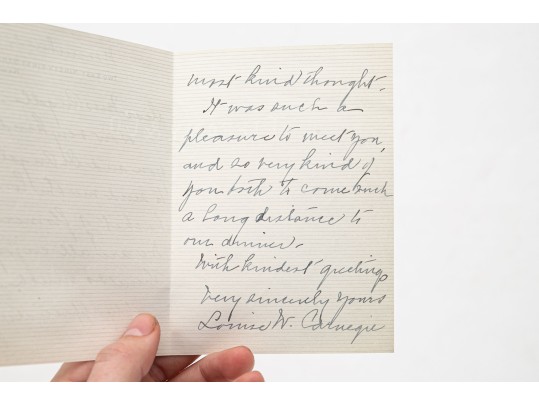 most kind thought.
It was such a
pleasure to meet you,
and so very kind of
you both to come such
a long distance to
our dinner.
With kindest greetings
Very sincerely yours
Louise W. Carnegie